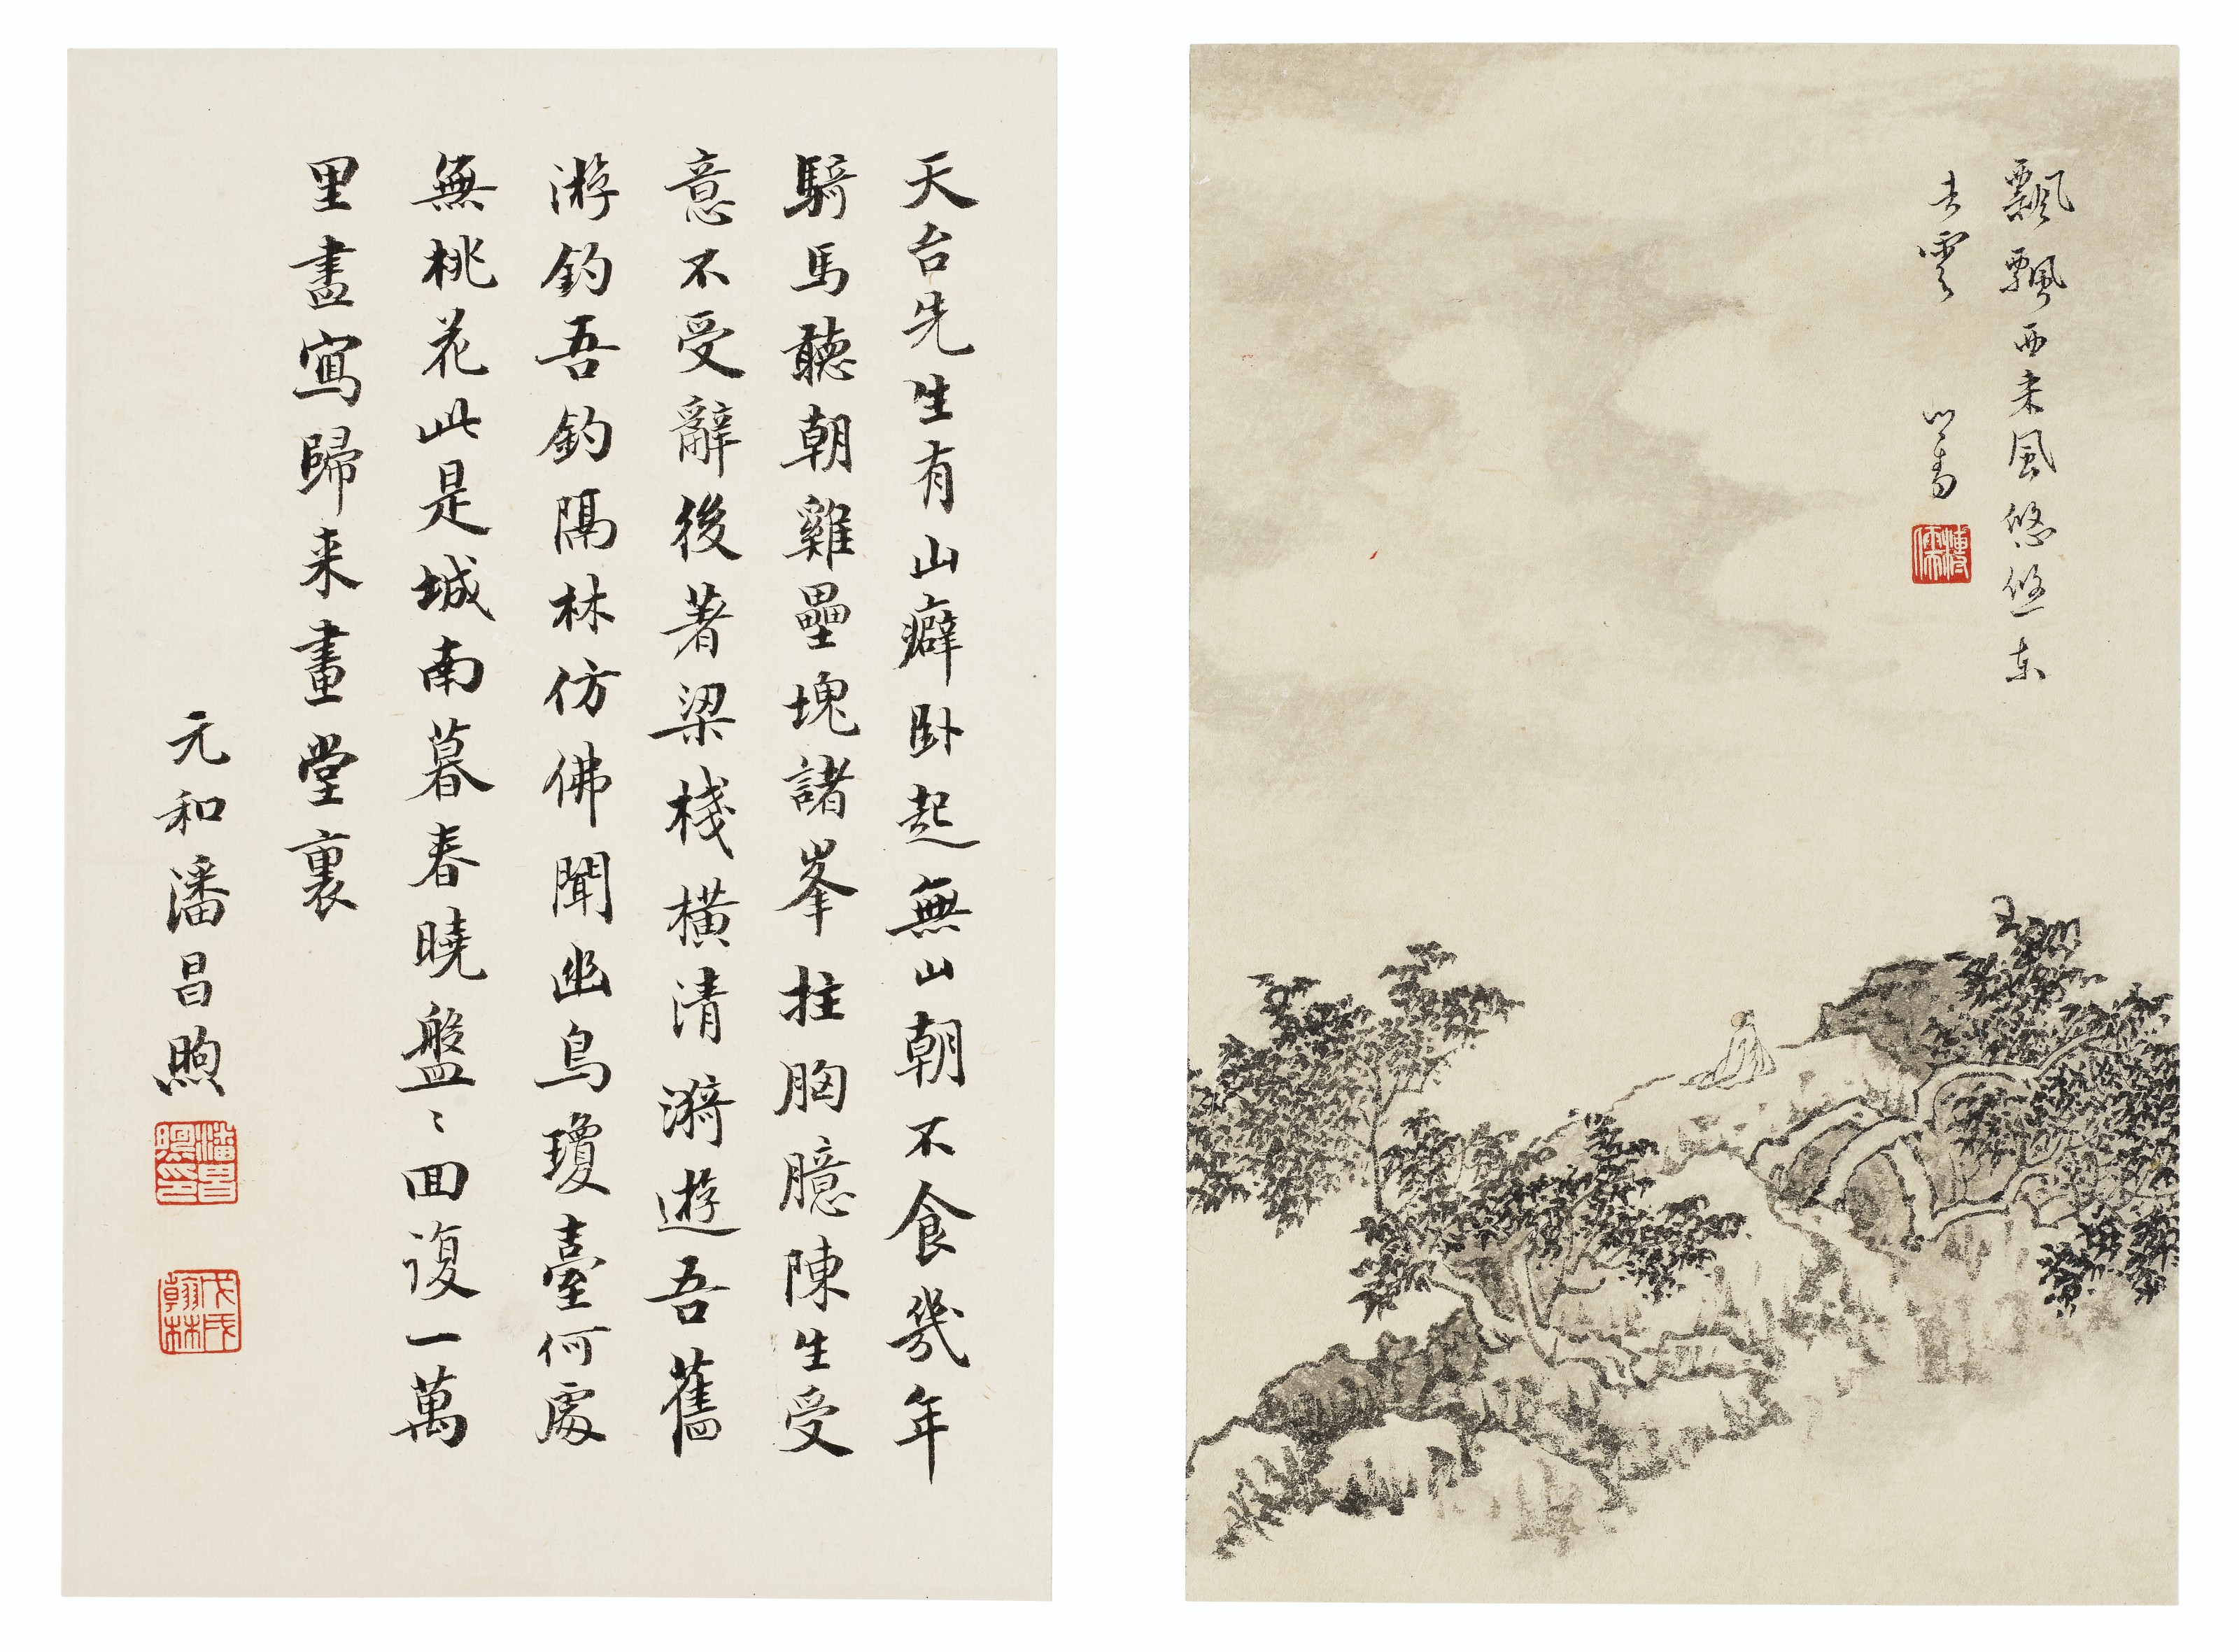 飄飄西来風悠悠東
去雲
心畬
溥儒
天台先生有山癖卧起無山朝不食幾年
騎馬聽朝雞壘塊諸峯拄胸臆陳生受
意不受辭後著梁棧橫清漪遊吾舊
游釣吾釣隔林仿佛聞幽鳥瓊臺何處
無桃花此是城南暮春曉盤〻回複一萬
里盡寫歸来畫堂裏
元和潘昌煦
潘昌煦印
戊戌翰林